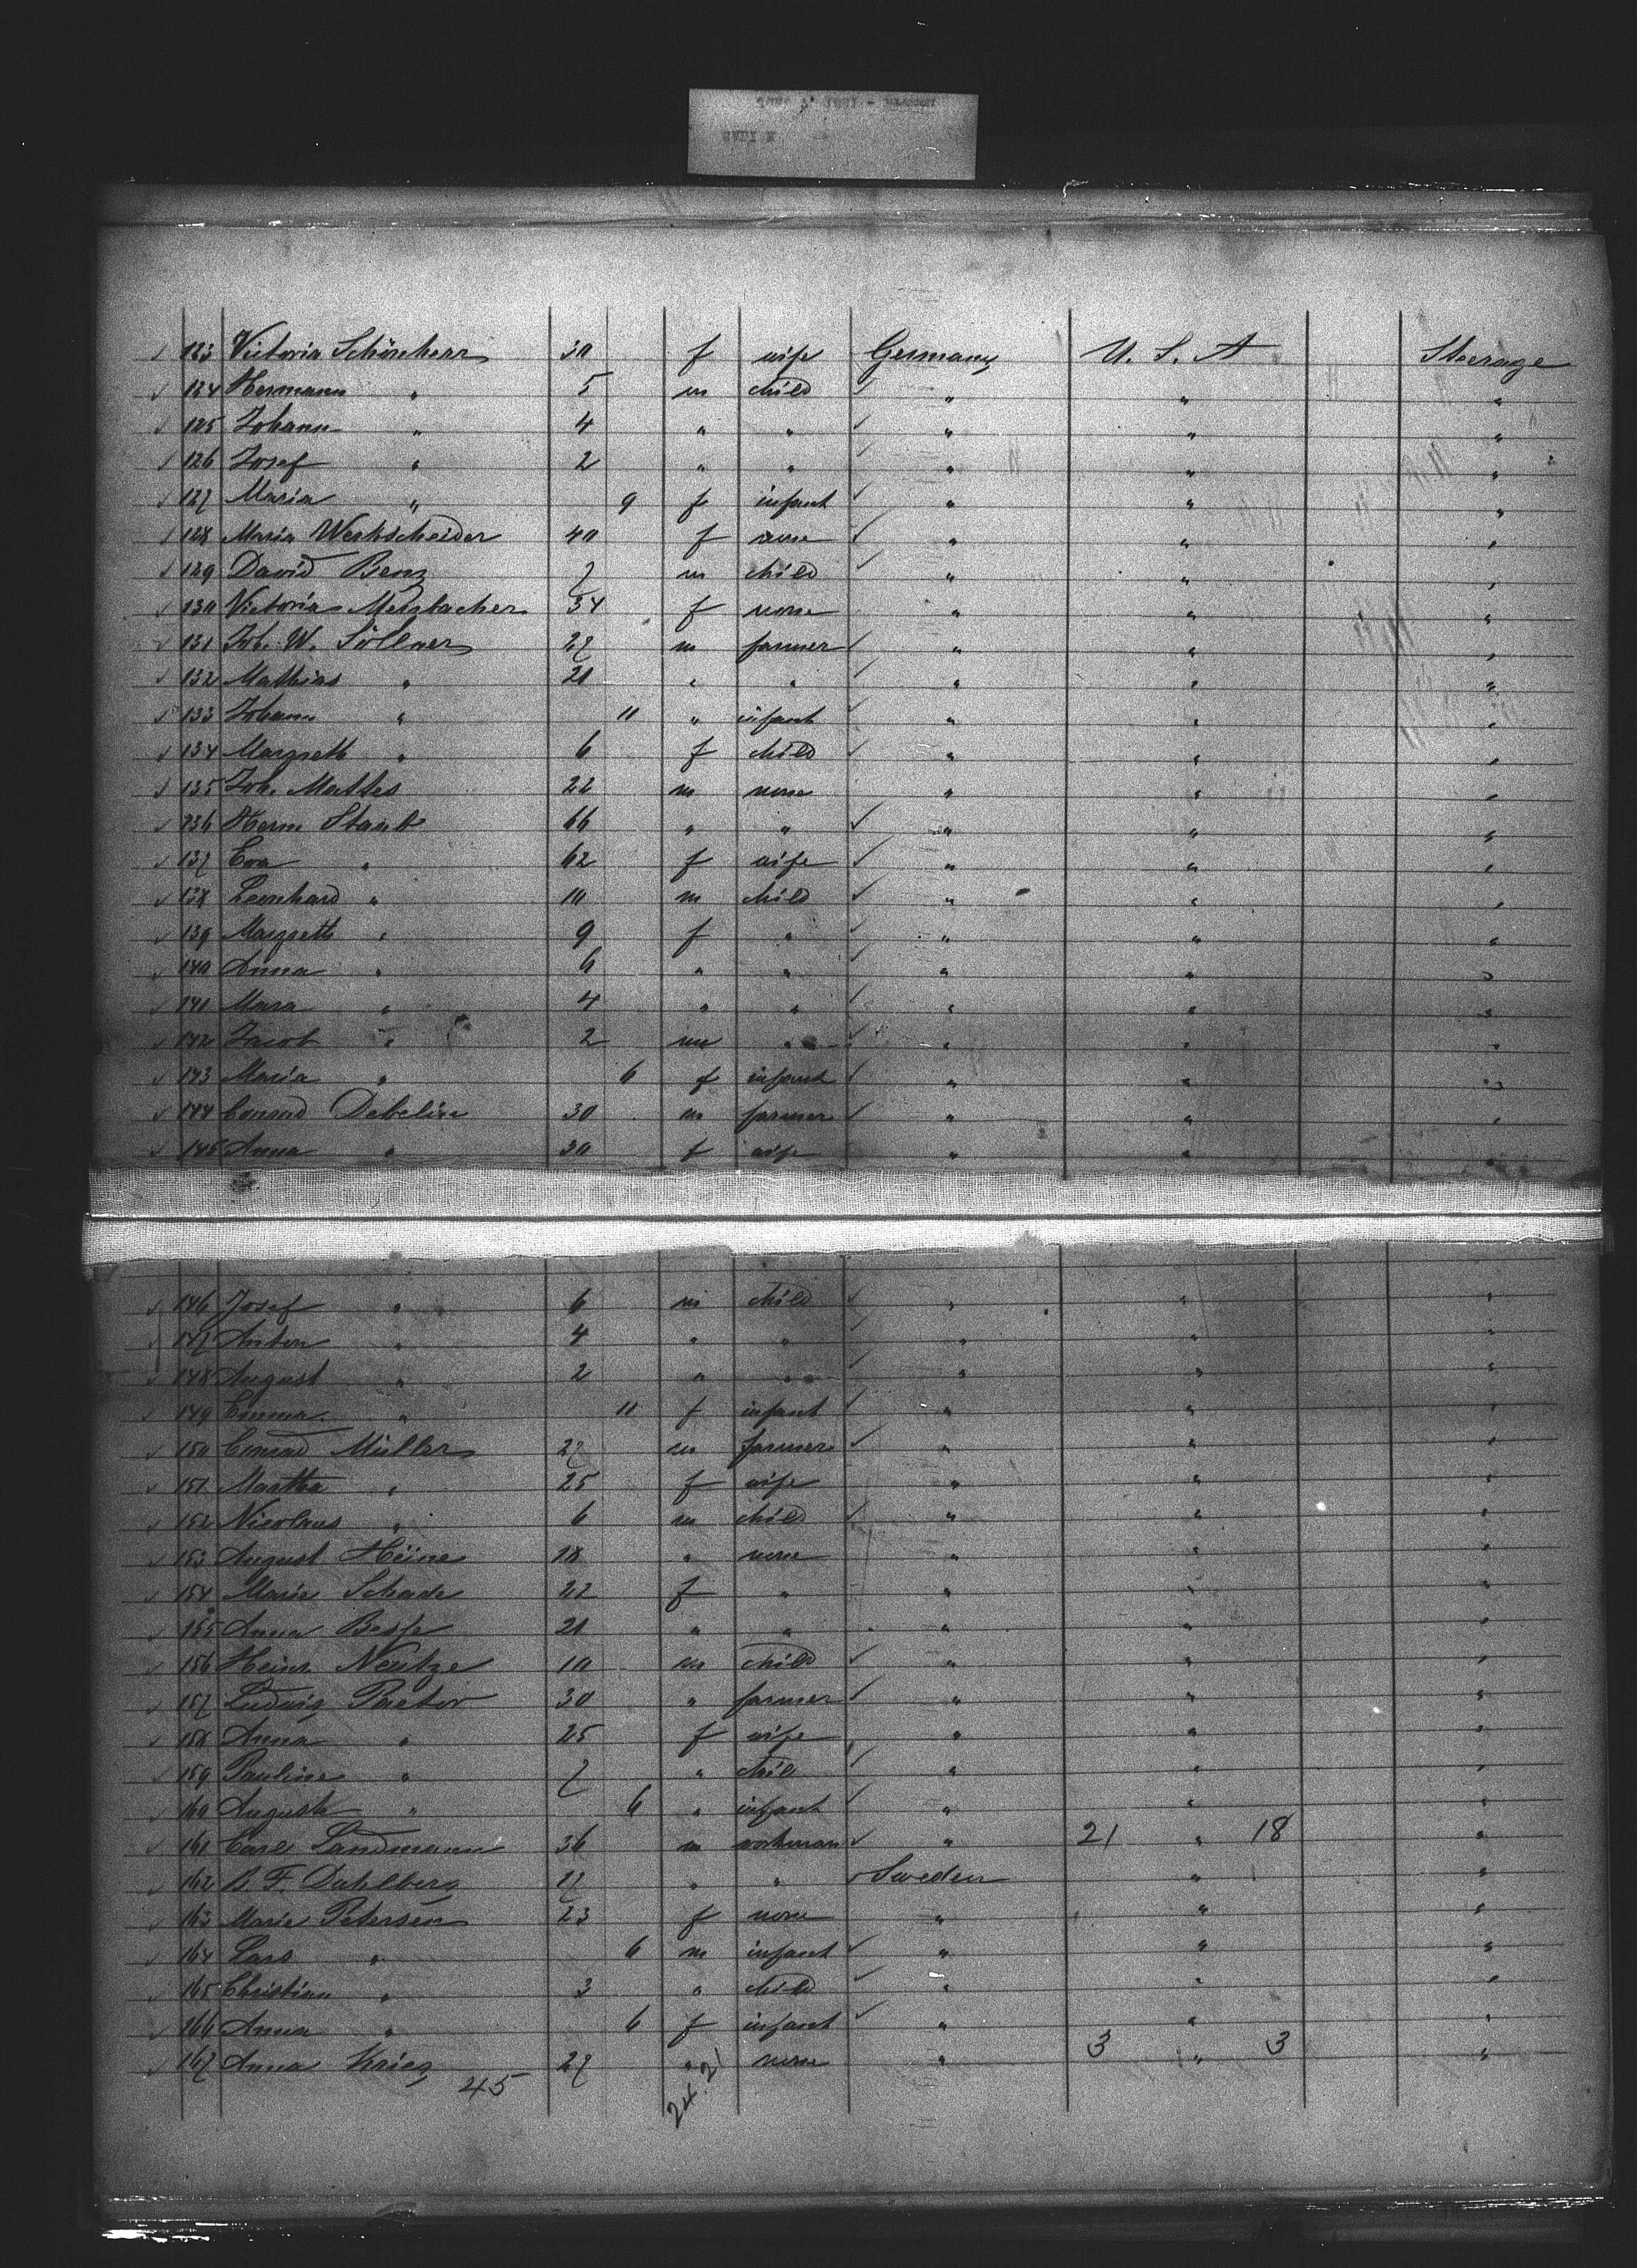 123 Victoria Schönherr 30 f wife Germany U. S. A Steerage
124 Hermann " 5 m child " " "
125 Johann " 4 " " " " "
126 Josef " 2 " " " " "
127 Maria " 9 f infant " " "
128 Maria Werkscheider 40 f none " " "
129 David Benz 7 m child " " "
130 Victoria Meisbacher 34 f none " " "
131 Joh. W. Söllner 27 m farmer " " "
132 Mathias " 21 " " " " "
133 Johann " 11 " infant " " "
134 Margreth " 6 f child " " "
135 Joh. Mattes 22 m none " " "
136 Herm Staub 66 " " " " "
137 Eva " 62 f wife " " "
138 Leonhard " 10 m child " " "
139 Margreth " 9 f " " " "
140 Anna " 6 " " " " "
141 Mara " 4 " " " " "
142 Jacob " 2 m " " " "
143 Maria " 6 f infant " " "
144 Conrad Debelin 30 m farmer " " "
145 Anna " 30 f wife " " "
146 Josef " 6 m child " " "
147 Anton " 4 " " " " "
148 August " 2 " " " " "
149 Emma " 11 f infant " " "
150 Conrad Müller 27 m farmer " " "
151 Martha " 25 f wife " " "
152 Nicolaus " 6 m child " " "
153 August Heine 18 " none " " "
154 Marie Schade 22 f " " " "
155 Anna Besse 21 " " " " "
156 Heinr Neutze 10 m child " " "
157 Ludwig Pastor 30 " farmer " " "
158 Anna " 25 f wife " " "
159 Pauline " 7 " child " " "
160 Auguste " 6 " infant " " "
161 Carl Landmann 36 m workman " 21 " 18 "
162 B. F. Dahlberg 27 " " Sweden " "
163 Marie Petersen 23 f none " " "
164 Lars " 6 m infant " " "
165 Christian " 3 " child " " "
166 Anna " 6 f infant " " "
167 Anna Krieg 27 " none " 3 " 3 "
45 24.21